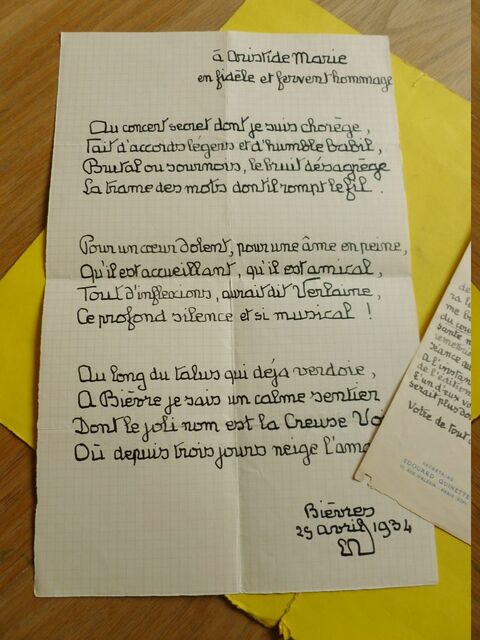 à Aristide Marie
en fidèle et fervent hommage
Au concert secret dont je suis chorège,
Fait d'accords légers et d'humble babil,
Brutal ou sournois, le bruit désagrège
La trame des mots dont il rompt le fil.
Pour un cœur dolent, pour une âme en peine,
Qu'il est accueillant, qu'il est amical,
Tout d'inflexions, aurait dit Verlaine,
Ce profond silence et si musical !
Au long du talus qui déjà verdoie,
A Bièvre je sais un calme sentier
Dont le joli nom est la Creuse
Où depuis trois jours neige
Bièvres
25 avril 1934
de
me
du
santé
remet
séance
A l'instan
de l'édition
d'un deux vo
serait plus do
Votre de tout
SECRÉTAIRE
EDOUARD GUINETTE